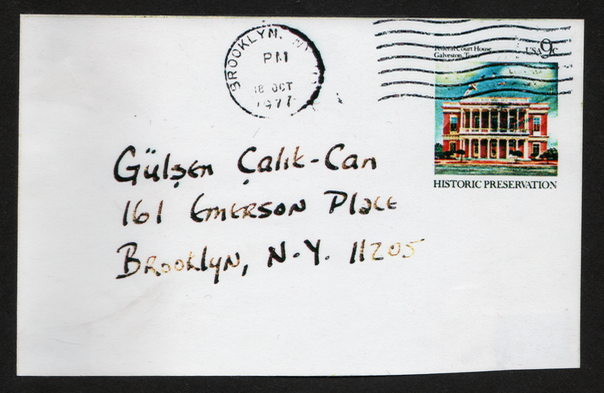 BROOKLYN, NY
PM
18 OCT
1977
Federal Court House
Galveston, Texas
USA 9c
HISTORIC PRESERVATION
Gülşen Çalık-Can
161 Emerson Place
Brooklyn, N.Y. 11205